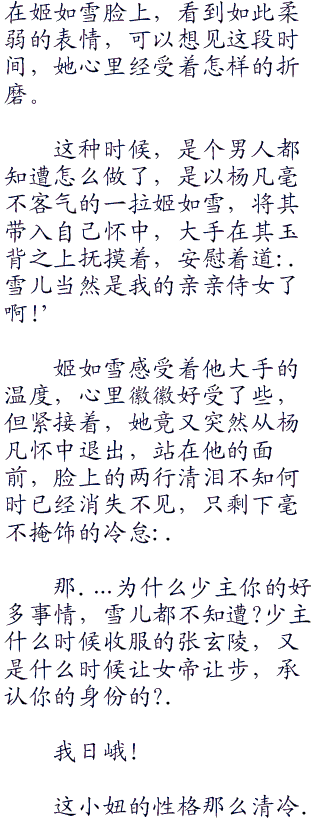 在姬如雪脸上，看到如此柔
弱的表情，可以想见这段时
间，她心里经受着怎样的折
磨。
这种时候，是个男人都
知遭怎么做了，是以杨凡毫
不客气的一拉姬如雪，将其
带入自己怀中，大手在其玉
背之上抚摸着，安慰着道:.
雪儿当然是我的亲亲侍女了
啊!’
姬如雪感受着他大手的
温度，心里徽徽好受了些，
但紧接着，她竟又突然从杨
凡怀中退出，站在他的面
前，脸上的两行清泪不知何
时已经消失不见，只剩下毫
不掩饰的冷怠:.
那．...为什么少主你的好
多事情，雪儿都不知遭?少主
什么时候收服的张玄陵，又
是什么时候让女帝让步，承
认你的身份的?.
我日峨!
这小妞的性格那么清冷.